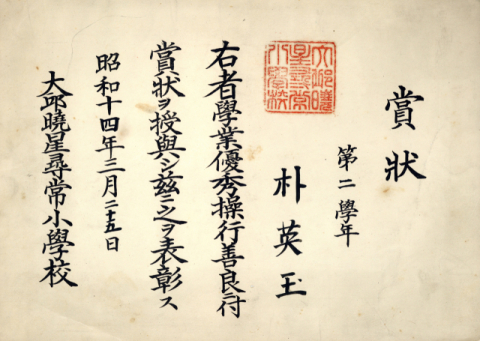 賞狀
第二學年
朴英玉
右者學業優秀操行善良ニ付
賞狀ヲ授與シ玆ニ之ヲ表彰ス
昭和十四年三月二十五日
大邱曉星尋常小學校
大邱曉
星尋常
小學校